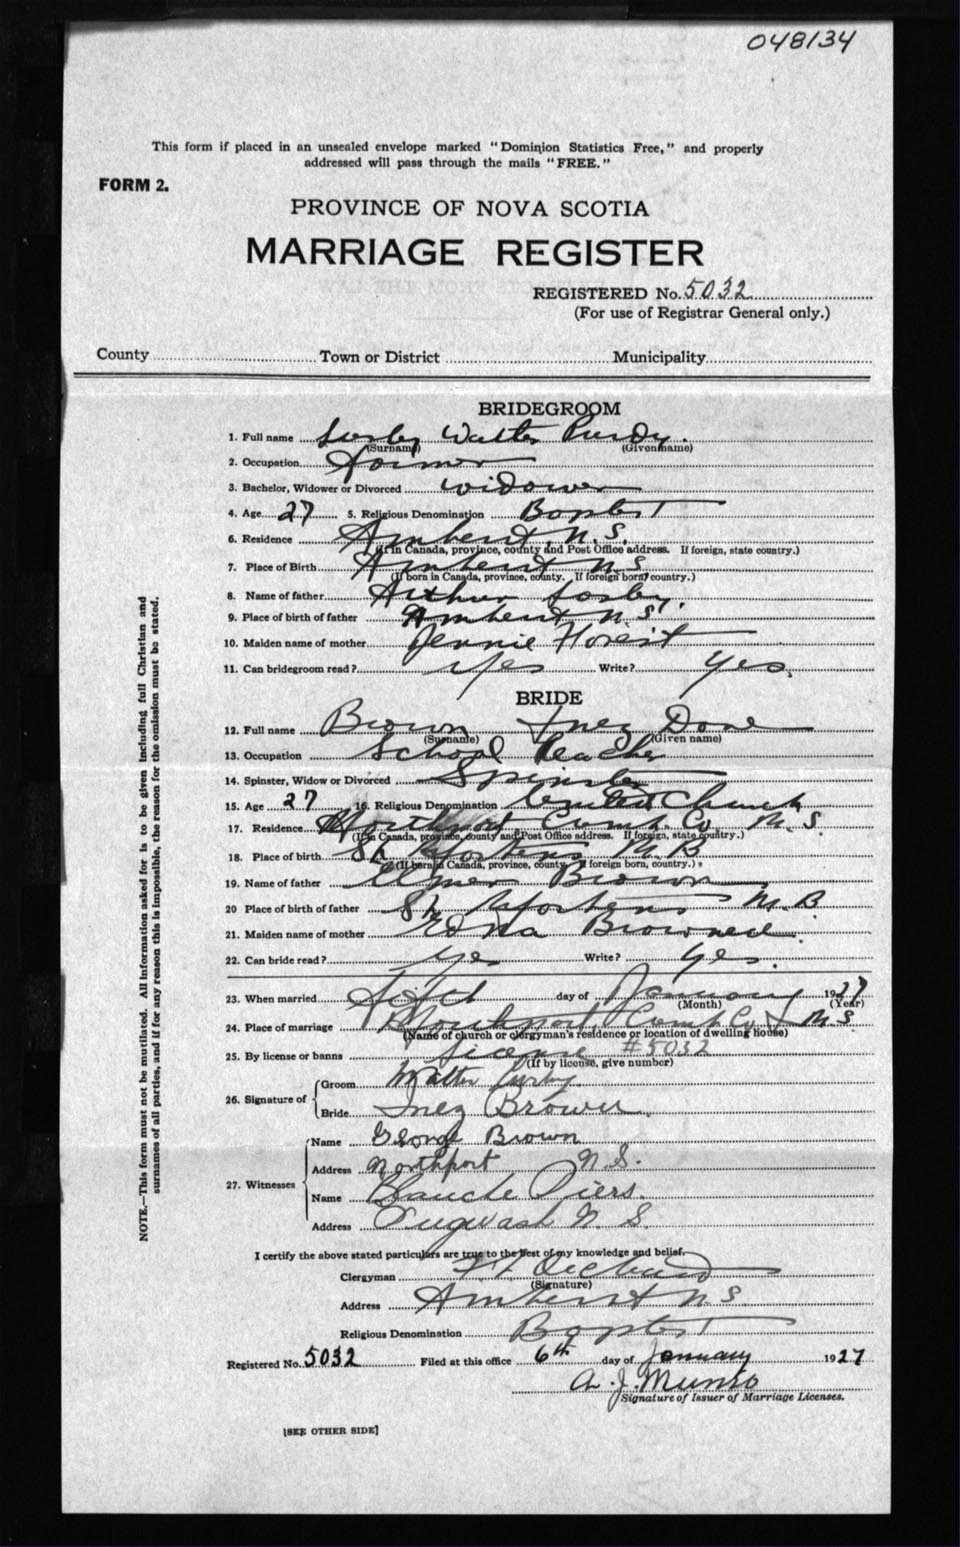 048134
This form if placed in an unsealed envelope marked "Dominion Statistics Free," and properly
addressed will pass through the mails "FREE."
FORM 2.
PROVINCE OF NOVA SCOTIA
MARRIAGE REGISTER
REGISTERED No. 5032
(For use of Registrar General only.)
County Town or District Municipality
BRIDEGROOM
1. Full name Walter Purdy.
(Surname) (Given name)
2. Occupation Farmer
3. Bachelor, Widower or Divorced widower
4. Age 27 5. Religious Denomination Baptist
6. Residence Amherst, N.S.
(If in Canada, province, county and Post Office address. If foreign, state country.)
7. Place of Birth Amherst N S
(If born in Canada, province, county. If foreign born, country.)
8. Name of father Arthur
9. Place of birth of father Amherst N.S.
10. Maiden name of mother Jennie
11. Can bridegroom read? Yes Write? Yes.
BRIDE
12. Full name Brown Inez
(Surname) (Given name)
13. Occupation School Teacher
14. Spinster, Widow or Divorced Spinster
15. Age 27 16. Religious Denomination United Church
17. Residence Northport Cumb. Co N.S.
(If in Canada, province, county and Post Office address. If foreign, state country.)
18. Place of birth N.B
(If born in Canada, province, county. If foreign born, country.)
19. Name of father Elmer Brown
20 Place of birth of father N.B.
21. Maiden name of mother Edna
22. Can bride read? Yes Write? Yes.
23. When married Fifth day of January 1927
(Month) (Year)
24. Place of marriage Northport, Cumb Co N S
(Name of church or clergyman's residence or location of dwelling house)
25. By license or banns License #5032
(If by license, give number)
26. Signature of
Groom Walter
Bride Inez Brown
27. Witnesses
Name George Brown
Address Northport N.S.
Name Blanche Piers.
Address Pugwash N. S.
I certify the above stated particulars are true to the best of my knowledge and belief.
Clergyman
(Signature)
Address Amherst N.S.
Religious Denomination Baptist
Registered No. 5032 Filed at this office 6th day of January 1927
A. J. Munro
Signature of Issuer of Marriage Licenses.
[SEE OTHER SIDE]
NOTE.—This form must not be mutilated. All information asked for is to be given including full Christian and
surnames of all parties, and if for any reason this is impossible, the reason for the omission must be stated.